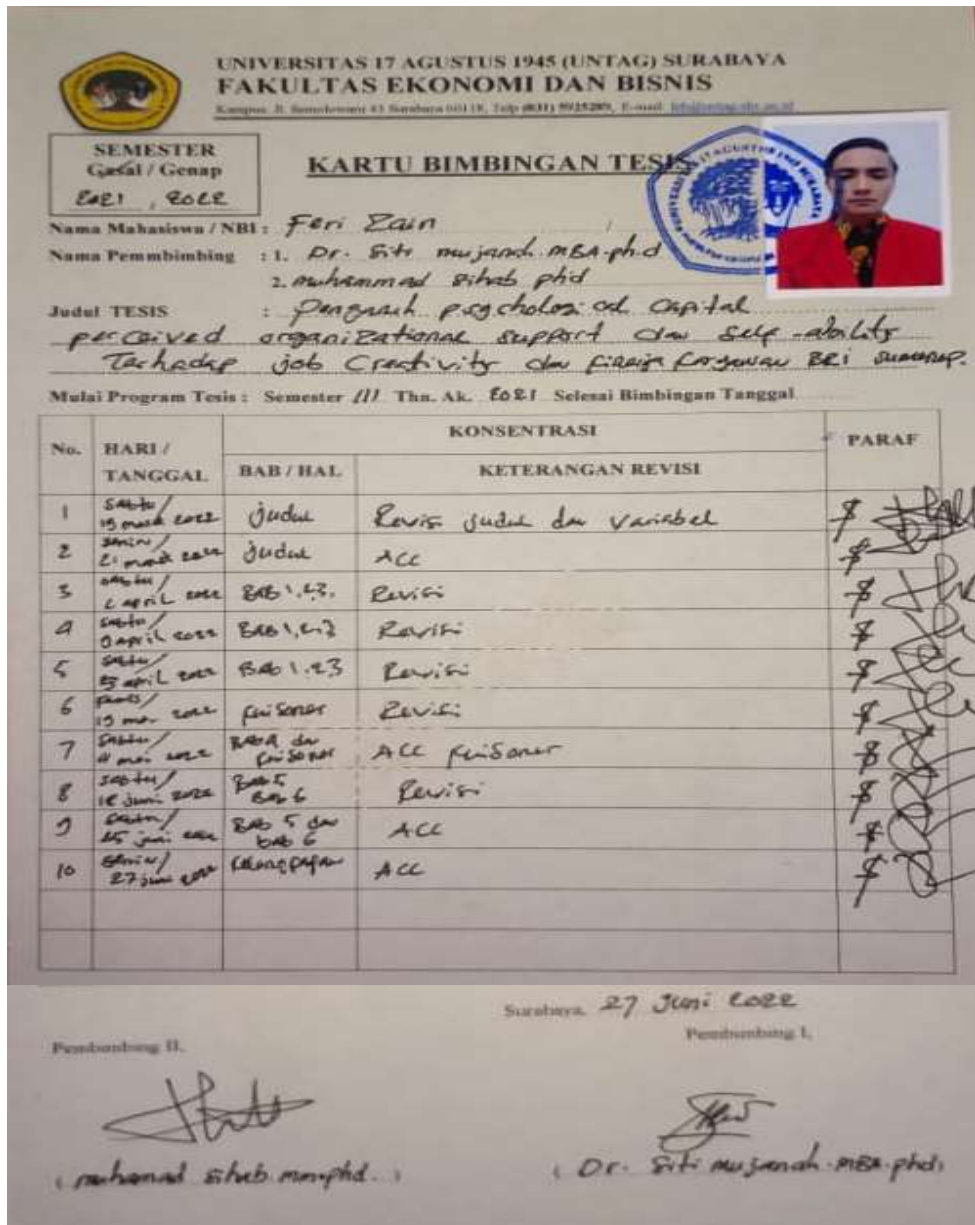 UNIVERSITAS 17 AGUSTUS 1945 (UNTAG) SURABAYA
FAKULTAS EKONOMI DAN BISNIS
Kampus: Jl. Semolowaru 45 Surabaya 60118, Telp (031) 5925289, E-mail:
SEMESTER
Gasal / Genap
2021 , 2022
KARTU BIMBINGAN TESIS
Nama Mahasiswa / NBI : Feri Zain /
Nama Pemmbimbing : 1. Dr. Siti mujanah. MBA. ph.d
2. muhammad sihab phd
Judul TESIS : Pengaruh psychological Capital
perceived organizational support dan self-ability
Terhadap job Creativity dan kinerja karyawan BRI sumenep.
Mulai Program Tesis : Semester III Thn. Ak. 2021 Selesai Bimbingan Tanggal
No. HARI / TANGGAL KONSENTRASI PARAF
BAB / HAL KETERANGAN REVISI
1 Sabtu / 19 2022 judul Revisi judul dan Variabel
2 senin / 21 2022 judul ACC
3 sabtu / 2 april 2022 BAB 1,2,3. Revisi
4 sabtu / 9 april 2022 BAB 1,2,3 Revisi
5 sabtu / april 2022 BAB 1,2,3 Revisi
6 2022 kuisoner Revisi
7 2022 dan kuisoner ACC kuisoner
8 sabtu / juni 2022 Bab 5 Bab 6 Revisi
9 sabtu / 25 juni 2022 Bab 5 dan bab 6 ACC
10 senin / 27 juni 2022 ACC
Surabaya, 27 Juni 2022
Pembimbing II, Pembimbing I,
( muhamad sihab. mm.phd. ) ( Dr. Siti mujanah. MBA. phd)